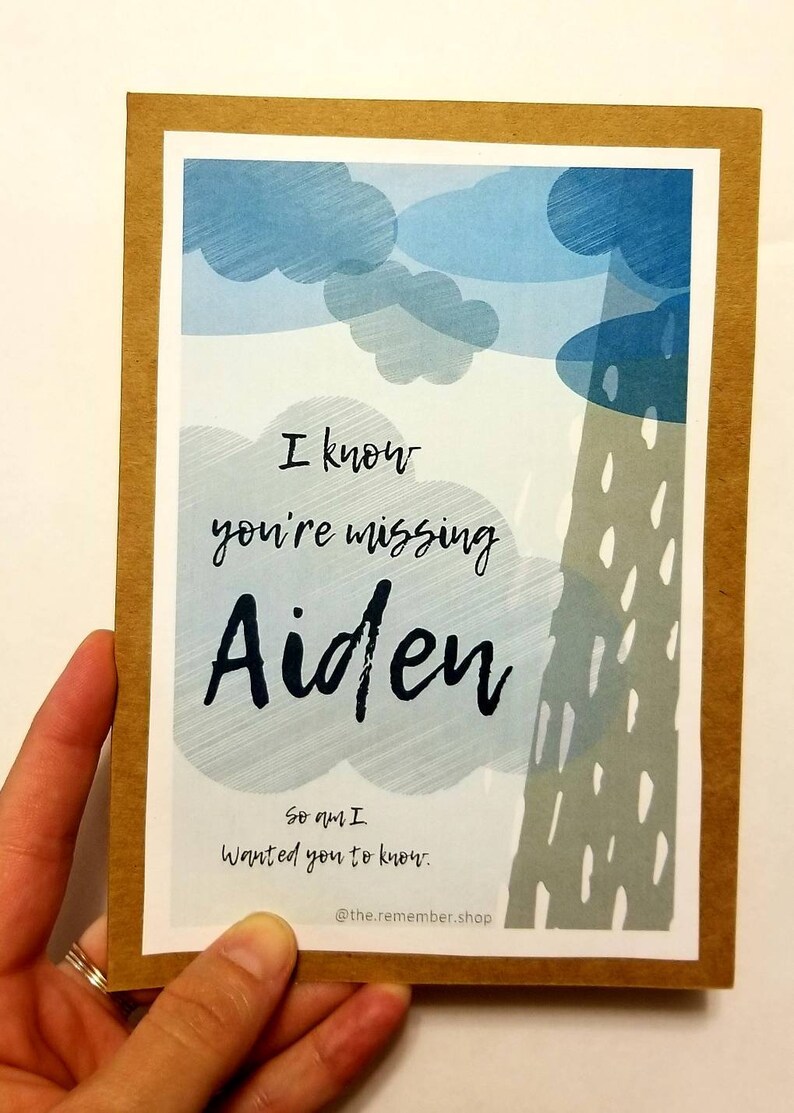 I know
you're missing
Aiden
So am I.
Wanted you to know.
@the.remember.shop